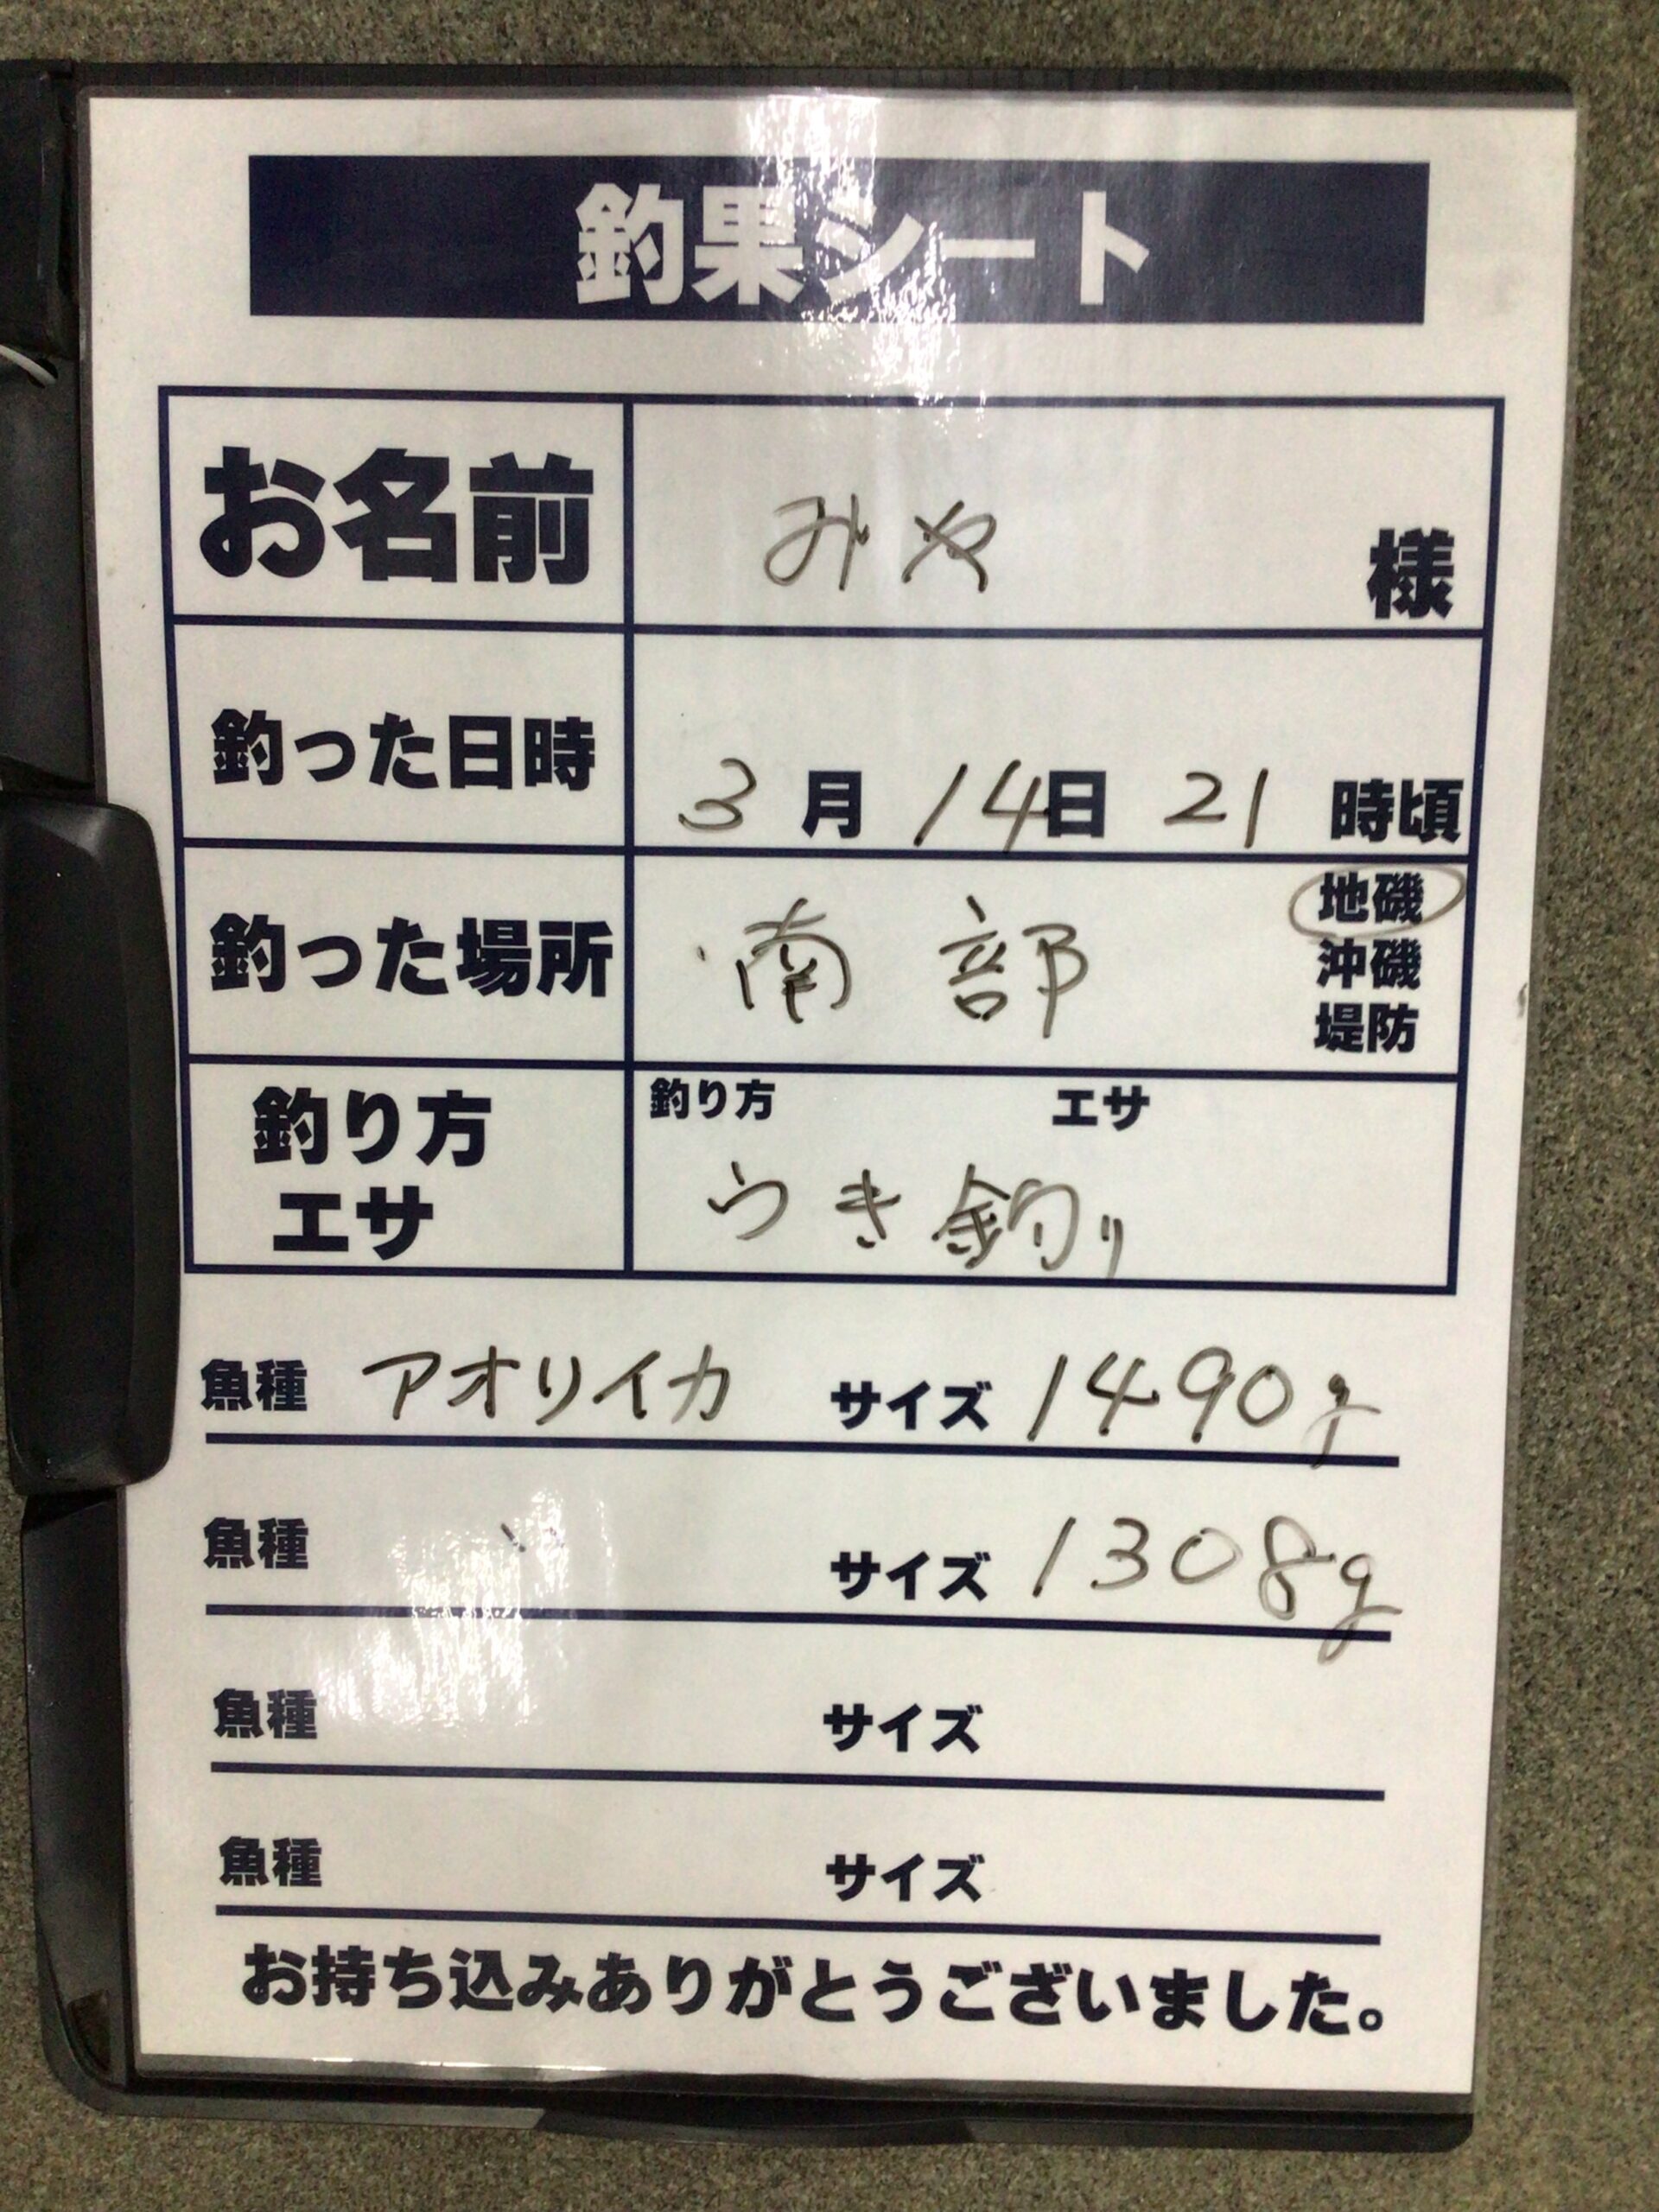 釣果シート
お名前 みや 様
釣った日時 3月14日 21時頃
釣った場所 南部 地磯
沖磯
堤防
釣り方 エサ
釣り方
エサ
うき釣り
魚種 アオリイカ サイズ 1490g
魚種 〃 サイズ 1308g
魚種 サイズ
魚種 サイズ
お持ち込みありがとうございました。